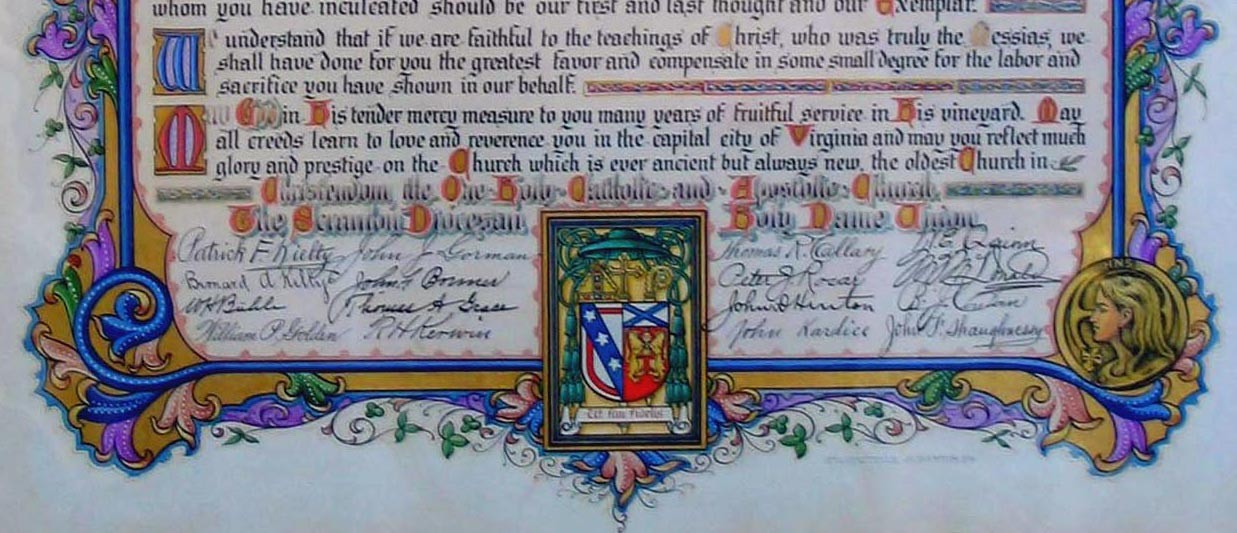 whom you have inculcated should be our first and last thought and our Exemplar.
We understand that if we are faithful to the teachings of Christ, who was truly the Messias, we
shall have done for you the greatest favor and compensate in some small degree for the labor and
sacrifice you have shown in our behalf.
May God in His tender mercy measure to you many years of fruitful service in His vineyard. May
all creeds learn to love and reverence you in the capital city of Virginia and may you reflect much
glory and prestige on the Church which is ever ancient but always new, the oldest Church in
Christendom, the One Holy Catholic and Apostolic Church.
The Scranton Diocesan Holy Name Union
Patrick F. Kielty John J. Gorman Thomas R. Callary
John F. Bonner Peter J. Rosar
Thomas A. Grace John D. Hinton
William P. Golden R. H. Kerwin John Kardice John F. Shaughnessy
Ut sim fidelis